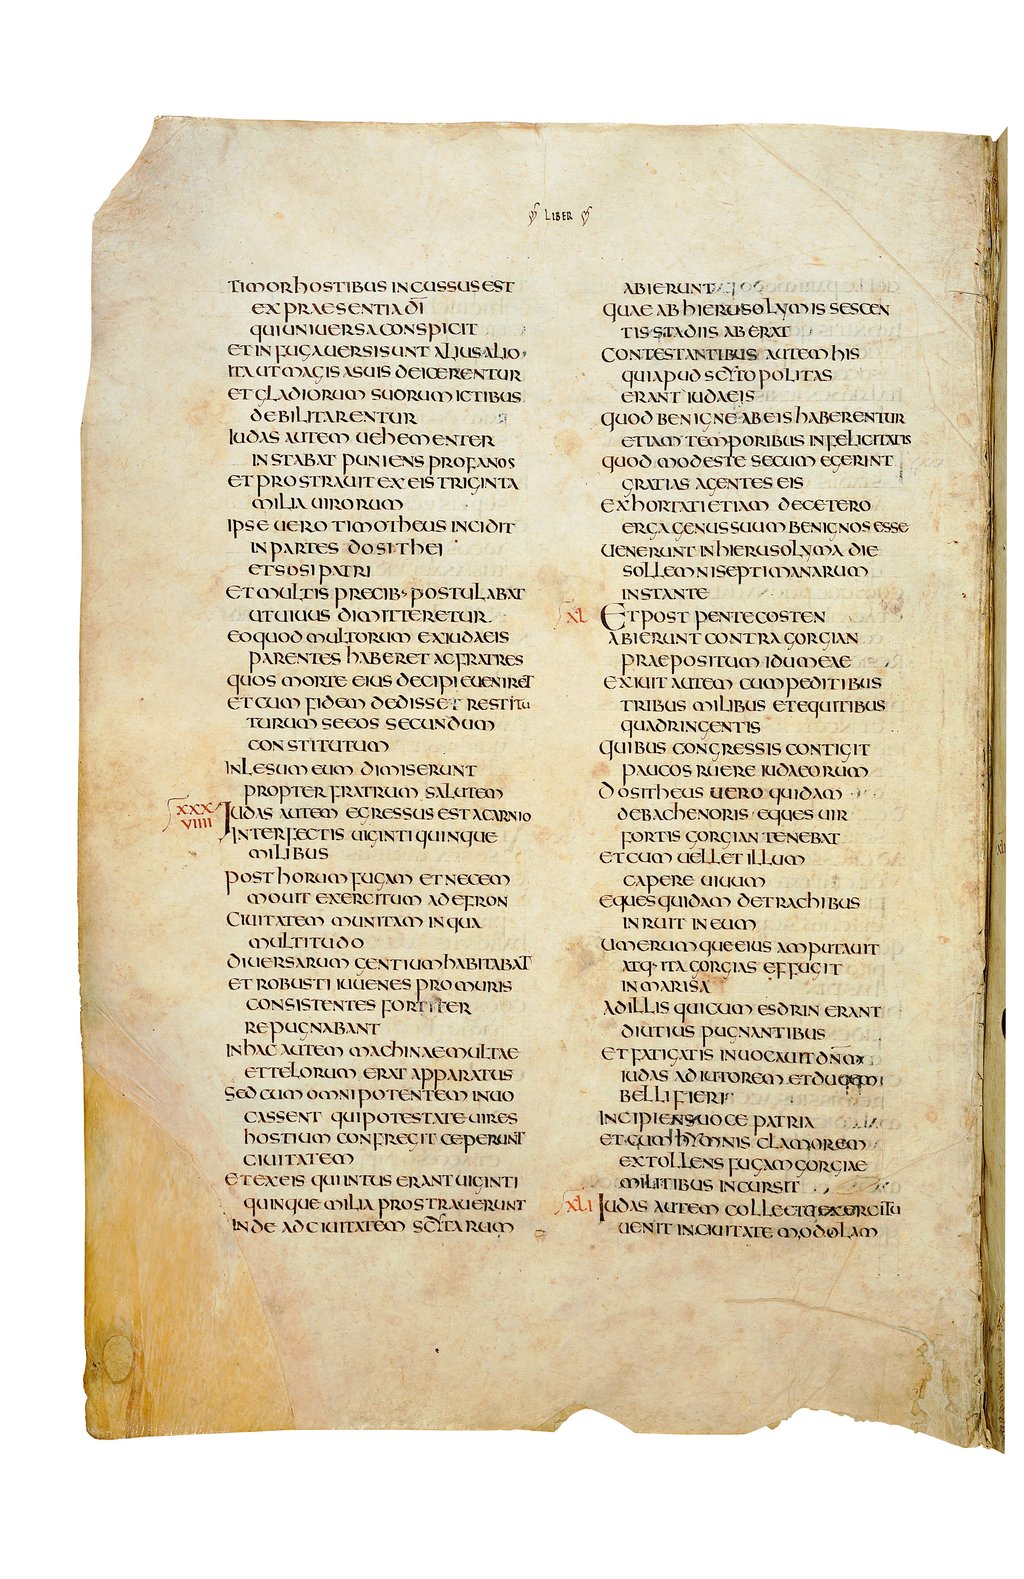 LIBER
TIMOR HOSTIBUS INCUSSUS EST
EX PRAESENTIA DĪ
QUI UNIVERSA CONSPICIT
ET IN FUGA UERSI SUNT ALIUS ALIO
ITA UT MAGIS A SUIS DEICERENTUR
ET GLADIORUM SUORUM ICTIBUS
DEBILITARENTUR
IUDAS AUTEM UEHEMENTER
INSTABAT PUNIENS PROFANOS
ET PROSTRAUIT EX EIS TRIGINTA
MILIA UIRORUM
IPSE UERO TIMOTHEUS INCIDIT
IN PARTES DOSITHEI
ET SOSIPATRI
ET MULTIS PRECIB· POSTULABAT
UT UIUUS DIMITTERETUR
EO QUOD MULTORUM EX IUDAEIS
PARENTES HABERET AC FRATRES
QUOS MORTE EIUS DECIPI EUENIRET
ET CUM FIDEM DEDISSET RESTITU
TURUM SE EOS SECUNDUM
CONSTITUTUM
INLESUM EUM DIMISERUNT
PROPTER FRATRUM SALUTEM
XXX IUDAS AUTEM EGRESSUS EST A CARNIO
VIIII INTERFECTIS UIGINTI QUINQUE
MILIBUS
POST HORUM FUGAM ET NECEM
MOUIT EXERCITUM AD EFRON
CIUITATEM MUNITAM IN QUA
MULTITUDO
DIUERSARUM GENTIUM HABITABAT
ET ROBUSTI IUUENES PRO MURIS
CONSISTENTES FORTITER
REPUGNABANT
IN HAC AUTEM MACHINAE MULTAE
ET TELORUM ERAT APPARATUS
SED CUM OMNIPOTENTEM INUO
CASSENT QUI POTESTATE UIRES
HOSTIUM CONFREGIT CEPERUNT
CIUITATEM
ET EX EIS QUI INTUS ERANT UIGINTI
QUINQUE MILIA PROSTRAUERUNT
INDE AD CIUITATEM SCYTARUM
ABIERUNT
QUAE AB HIERUSOLYMIS SESCEN
TIS STADIIS ABERAT
CONTESTANTIBUS AUTEM HIS
QUI APUD SCYTOPOLITAS
ERANT IUDAEIS
QUOD BENIGNE AB EIS HABERENTUR
ETIAM TEMPORIBUS INFELICITATIS
QUOD MODESTE SECUM EGERINT
GRATIAS AGENTES EIS
EXHORTATI ETIAM DE CETERO
ERGA GENUS SUUM BENIGNOS ESSE
UENERUNT IN HIERUSOLYMA DIE
SOLLEMNI SEPTIMANARUM
INSTANTE
XL ET POST PENTECOSTEN
ABIERUNT CONTRA GORGIAN
PRAEPOSITUM IDUMEAE
EXIUIT AUTEM CUM PEDITIBUS
TRIBUS MILIBUS ET EQUITIBUS
QUADRINGENTIS
QUIBUS CONGRESSIS CONTIGIT
PAUCOS RUERE IUDAEORUM
DOSITHEUS UERO QUIDAM
DE BACHENORIS EQUES UIR
FORTIS GORGIAN TENEBAT
ET CUM UELLET ILLUM
CAPERE UIUUM
EQUES QUIDAM DE TRACHIBUS
INRUIT IN EUM
UMERUMQUE EIUS AMPUTAUIT
ATQ· ITA GORGIAS EFFUGIT
IN MARISA
AD ILLIS QUI CUM ESDRIN ERANT
DIUTIUS PUGNANTIBUS
ET FATIGATIS INUOCAUIT DNM
IUDAS ADIUTOREM ET DUCEM
BELLI FIERI
INCIPIENS UOCE PATRIA
ET CUM HYMNIS CLAMOREM
EXTOLLENS FUGAM GORGIAE
MILITIBUS INCURSIT
XLI IUDAS AUTEM COLLECTO EXERCITU
UENIT IN CIUITATE MODOLAM